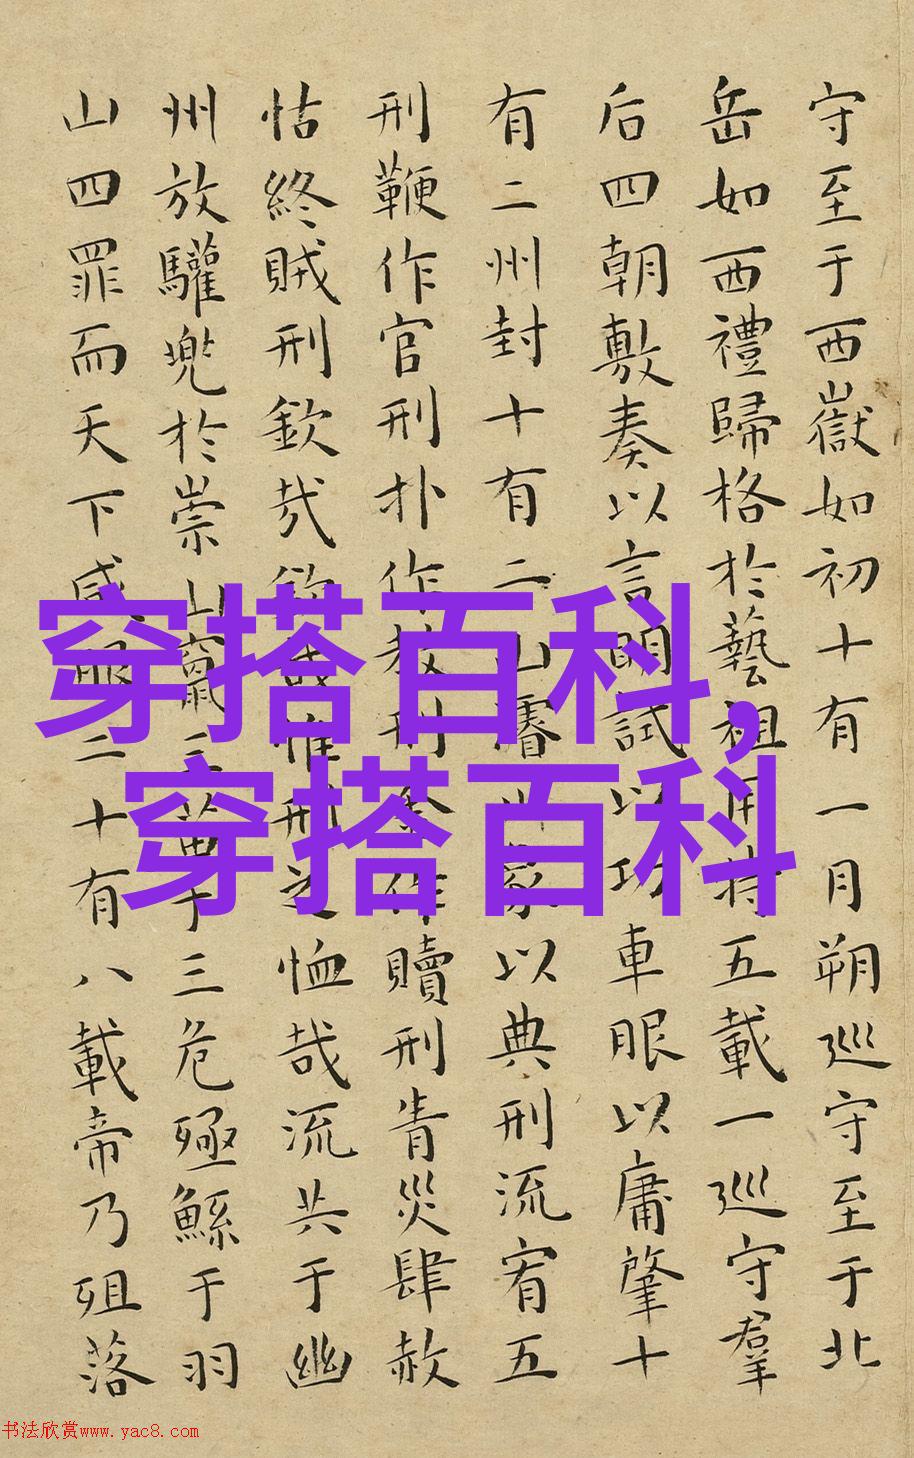 守至于西嶽如初十有一月朔巡守至于北
岳如西禮歸格於藝祖用特五載一巡守羣
后四朝敷奏以言明試以功車服以庸肇十
有二州封十有二山濬川象以典刑流宥五
刑鞭作官刑扑作教刑金作贖刑眚災肆赦
怙終賊刑欽哉欽哉惟刑之恤哉流共于幽
州放驩兜於崇山竄三苗于三危殛鯀于羽
山四罪而天下咸服二十有八載帝乃殂落
穿搭百科,
穿搭百科
书法欣赏www.yac8.com